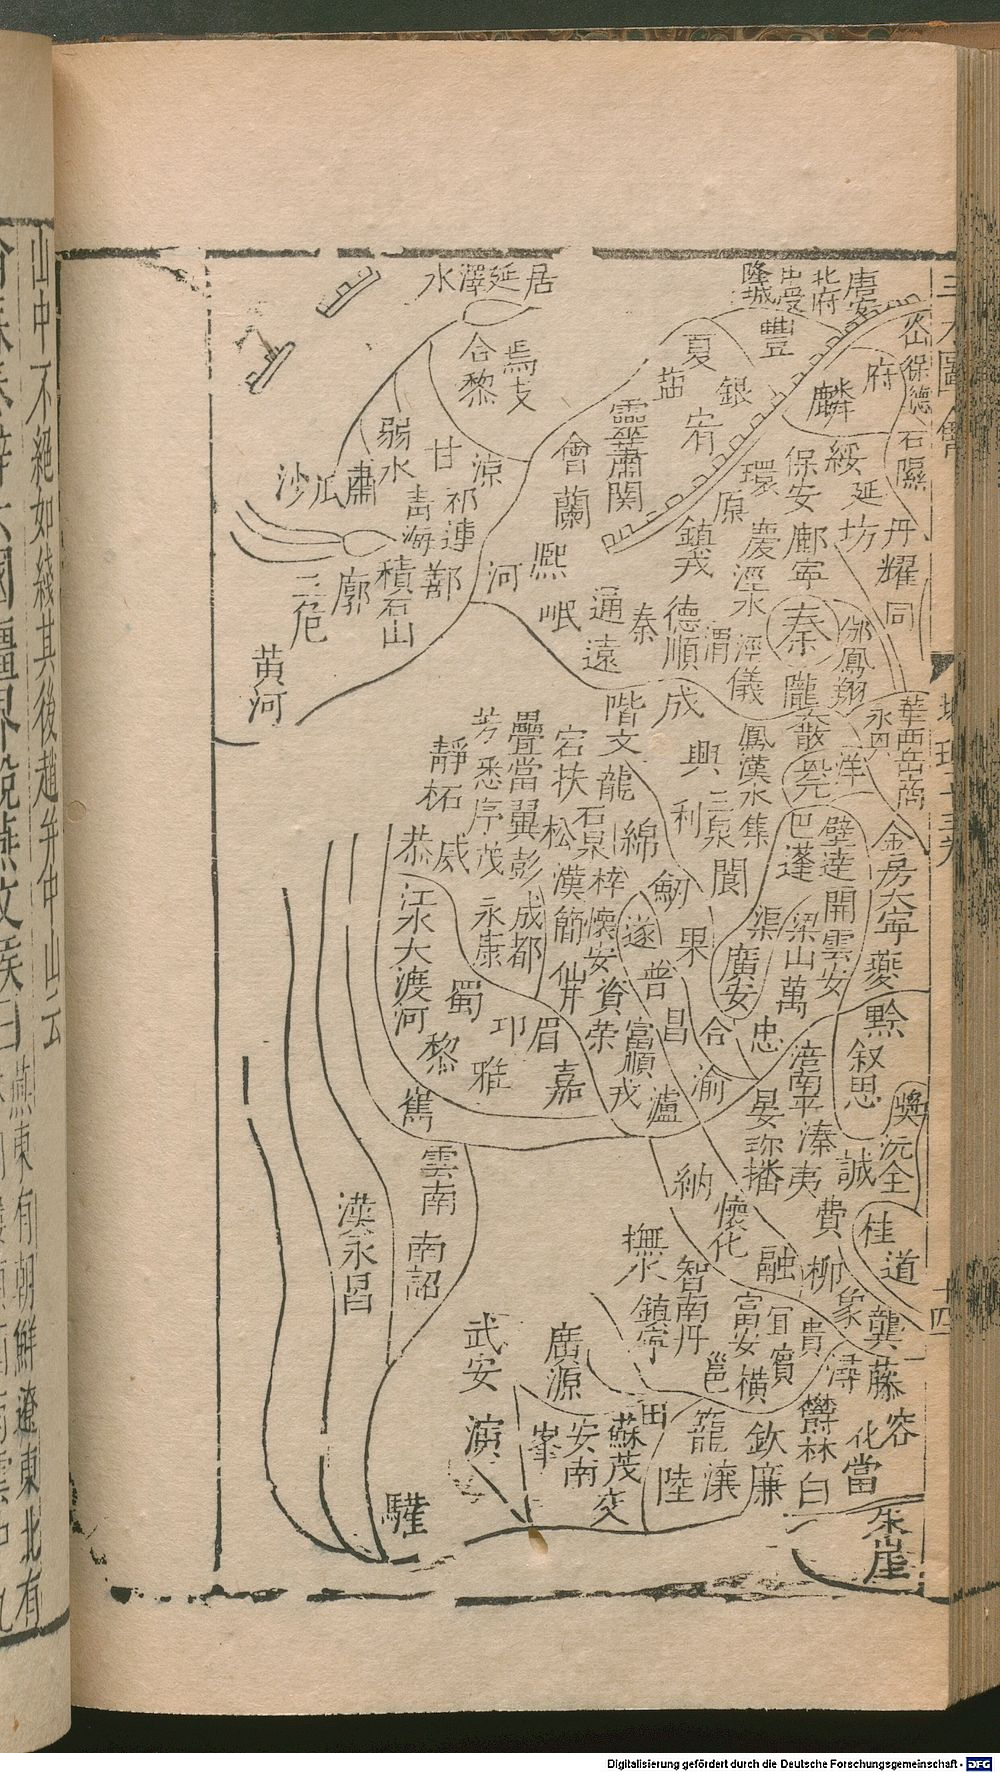 居延澤水
唐安
北府
豐
夏
塩
銀
宥
麟
府
保德
石隰
合黎
焉支
弱水
甘
涼
沙
瓜
肅
青海
祁連
靈
蕭関
會
蘭
熙
河
環
原
保安
綏
延
坊
丹
耀
同
鎮戎
慶
涇水
鄜
寧
三危
廓
積石山
鄯
岷
通遠
秦
德順
渭
涇
儀
秦
隴
鳳翔
黃河
華
西岳
商
階
文
成
鳳
漢水
集
大散
洋
興
三泉
利
靜
柘
芳
悉
疊
當
翼
宕
扶
龍
石泉
松
綿
恭
威
茂
彭
漢
梓
劒
閬
巴
蓬
壁
達
金
房
大寧
開
雲安
夔
江水
大渡河
永康
成都
簡
懷安
遂
果
渠
廣安
梁山
萬
蜀
仙井
資
普
昌
合
忠
黔
黎
邛
眉
榮
富順
雅
嘉
戎
瀘
渝
涪
南平
叙
思
奬
沅
全
嶲
晏
珎
播
溱
夷
誠
雲南
納
費
桂
道
懷化
漢永昌
南詔
撫水
融
柳
象
智
南丹
富安
宜
貴
賓
龔
藤
潯
鎮寧
武安
廣源
邕
橫
田
容
化
當
欝林
白
演
峯
安南
蘇茂
交
籠
欽
陸
瀼
廉
驩
朱崖
十四
山中不絕如綫其後趙并中山云
燕東有朝鮮遼東北有
Digitalisierung gefördert durch die Deutsche Forschungsgemeinschaft - DFG